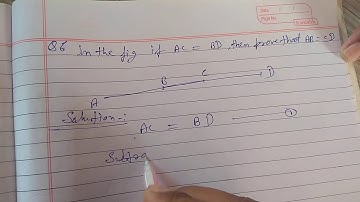 Q6 In the fig if AC = BD, then prove that AB = CD
A B C D
Solution-:
AC = BD ①
Subtra